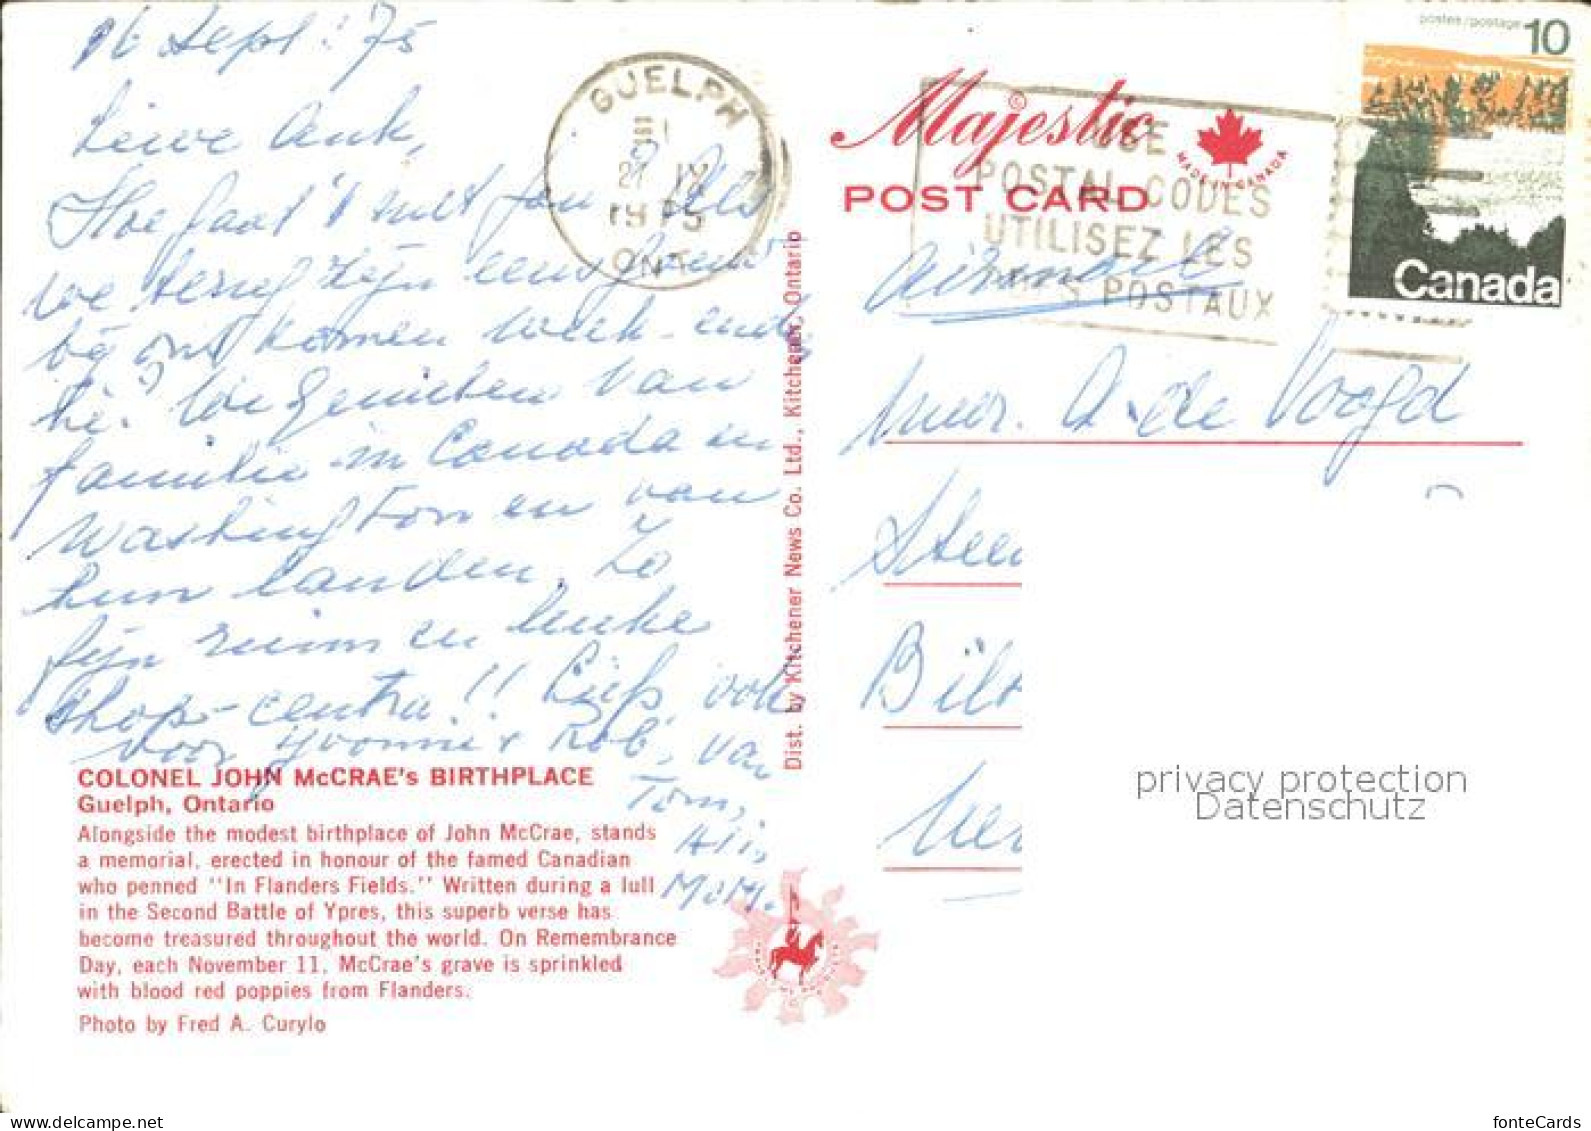 16 Sept. '75
Lieve Ank,
Hoe gaat 't met jou? Als
we terug zijn eens gauw
bij ons komen week-end,
hè? We genieten van
familie in Canada en
Washington en van
hun landen. Zo
fijn ruim en leuke
shop-centra!! Liefs, ook
voor Yvonne + Rob, van
Tom,
Ali,
Mom.
COLONEL JOHN McCRAE's BIRTHPLACE
Guelph, Ontario
Alongside the modest birthplace of John McCrae, stands
a memorial, erected in honour of the famed Canadian
who penned "In Flanders Fields." Written during a lull
in the Second Battle of Ypres, this superb verse has
become treasured throughout the world. On Remembrance
Day, each November 11, McCrae's grave is sprinkled
with blood red poppies from Flanders.
Photo by Fred A. Curylo
Dist. by Kitchener News Co. Ltd., Kitchener, Ontario
GUELPH
21 IX
1975
ONT
Majestic
©
MADE IN CANADA
POST CARD
USE
POSTAL CODES
UTILISEZ LES
POSTAUX
postes/postage 10
Canada
airmail
Mevr. A. de Voogd
Steen
Bilt
privacy protection
Datenschutz
www.delcampe.net
fonteCards